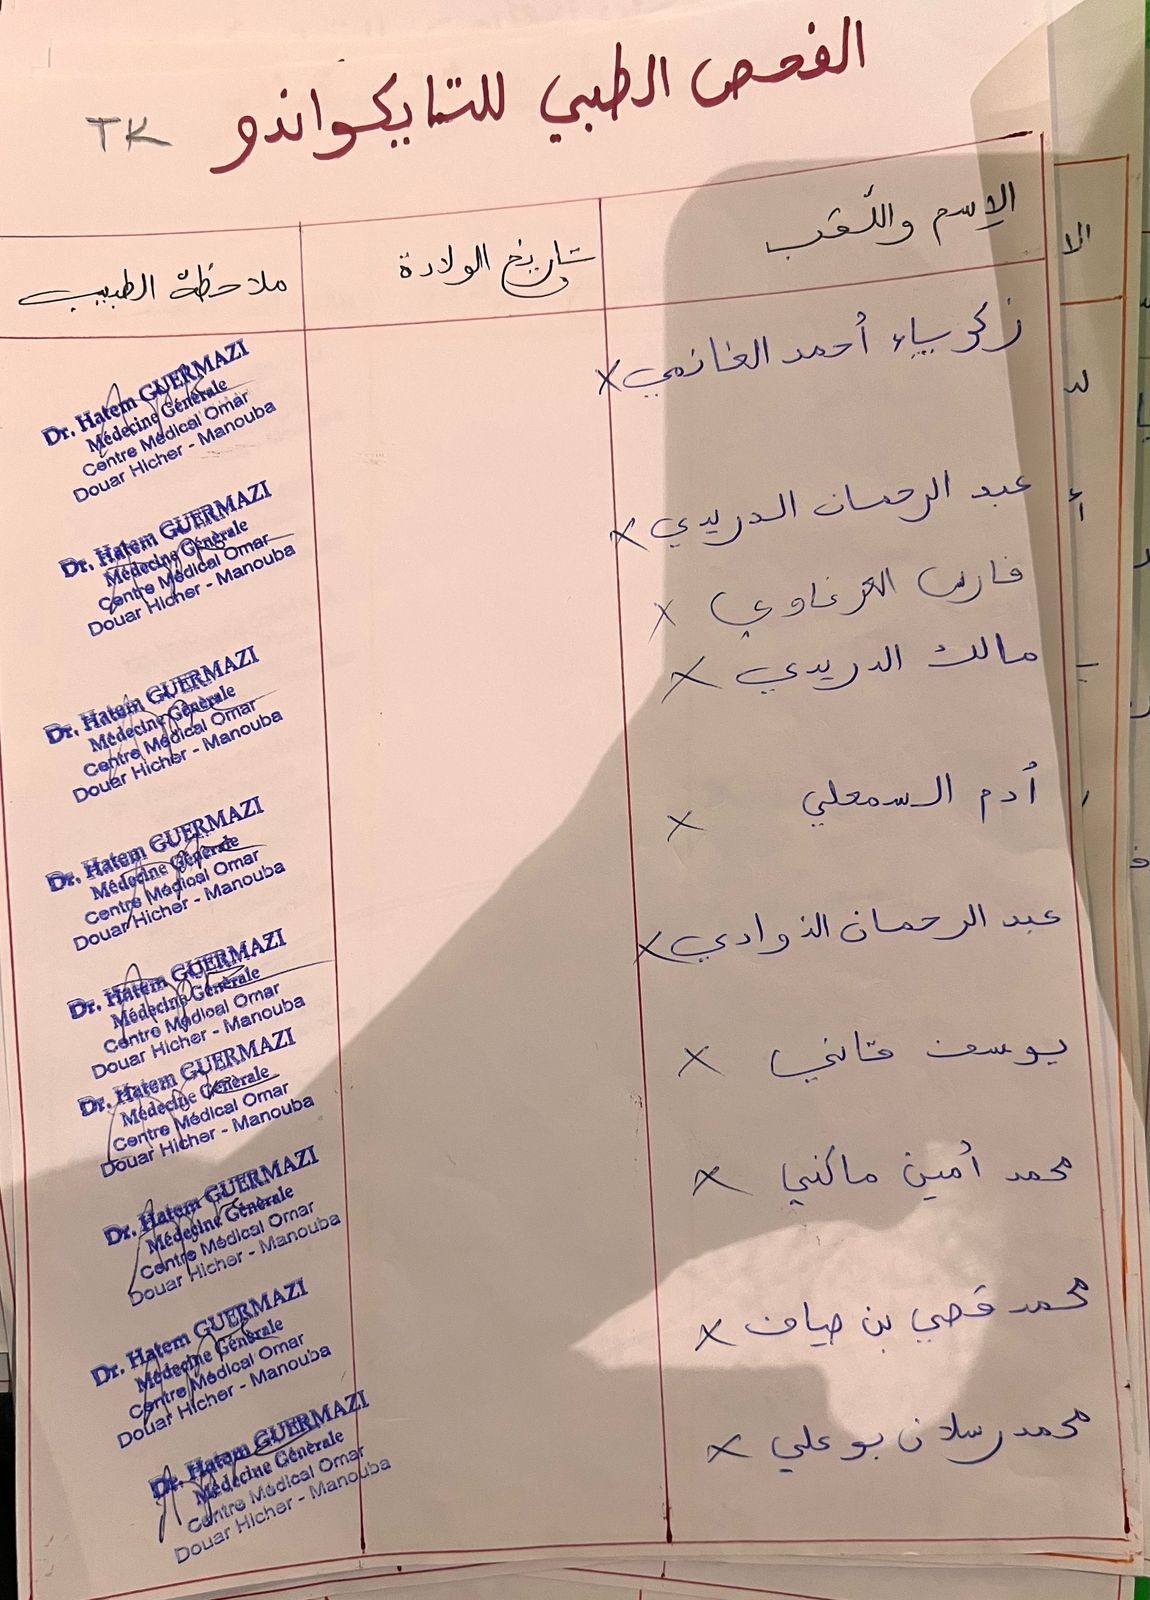 الفحص الطبي للتايكواندو
TK
الإسم واللّقب
تاريخ الولادة
ملاحظة الطبيب
زكرياء أحمد الغانمي X
Dr. Hatem GUERMAZI
Médecine Générale
Centre Médical Omar
Douar Hicher - Manouba
عبد الرحمان الدريدي X
Dr. Hatem GUERMAZI
Médecine Générale
Centre Médical Omar
Douar Hicher - Manouba
فارس X
مالك الدريدي X
Dr. Hatem GUERMAZI
Médecine Générale
Centre Médical Omar
Douar Hicher - Manouba
أدم السمعلي X
Dr. Hatem GUERMAZI
Médecine Générale
Centre Médical Omar
Douar Hicher - Manouba
عبد الرحمان الذوادي X
Dr. Hatem GUERMAZI
Médecine Générale
Centre Médical Omar
Douar Hicher - Manouba
يوسف X
Dr. Hatem GUERMAZI
Médecine Générale
Centre Médical Omar
Douar Hicher - Manouba
محمد أمين ماكني X
Dr. Hatem GUERMAZI
Médecine Générale
Centre Médical Omar
Douar Hicher - Manouba
محمد قصي بن ضياف X
Dr. Hatem GUERMAZI
Médecine Générale
Centre Médical Omar
Douar Hicher - Manouba
محمد رسلان بوعلي X
Dr. Hatem GUERMAZI
Médecine Générale
Centre Médical Omar
Douar Hicher - Manouba